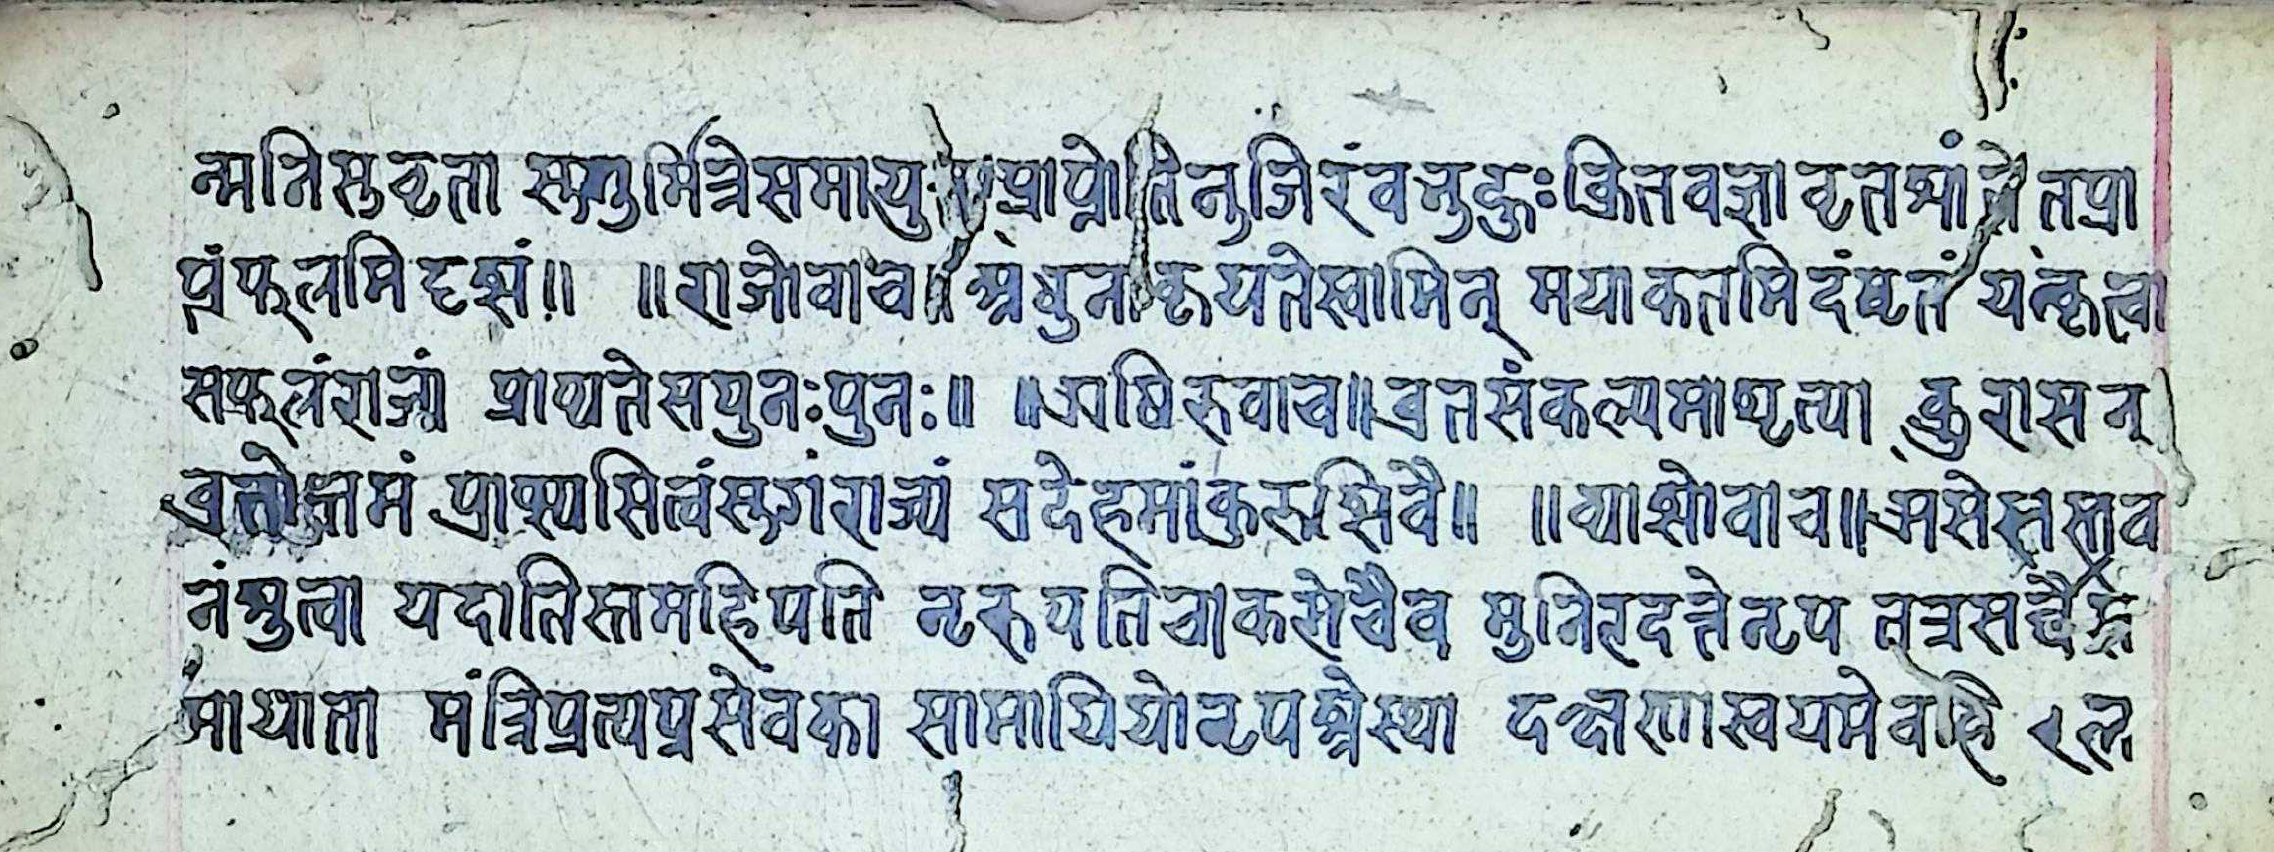 न्मनिस्तवृता स्मतुमित्रेसमायु प्राप्नोतिनुजिरंवनुद्धुः क्रितवज्ञावृतश्मांनेतप्रा
प्रंफलमिदृशं॥ ॥राजोवाच॥ श्रधुनाकृयतेस्वामिन् मयाकतमिदंवृतं यत्कृत्वा
सफलंराज्यं प्राप्यतेसपुनःपुनः॥ ॥ऋषिरुवाच॥ व्रतसंकल्पमाधृत्या कुरासन्
व्रतोत्तमं प्राप्स्यसित्वंस्तगंराज्यं सदेहमांकुरुशिवै॥ ॥व्याशोवाच॥
नंश्रुत्वा यदातिस्तमहिपति नृरुपतिचाकमेचैव मुनिहदत्तेनृप तत्रसर्वै
मायाता मंत्रिप्रत्यप्रसेवका सामाग्रियोनृपश्रेस्था दक्षणास्वयमेवहि